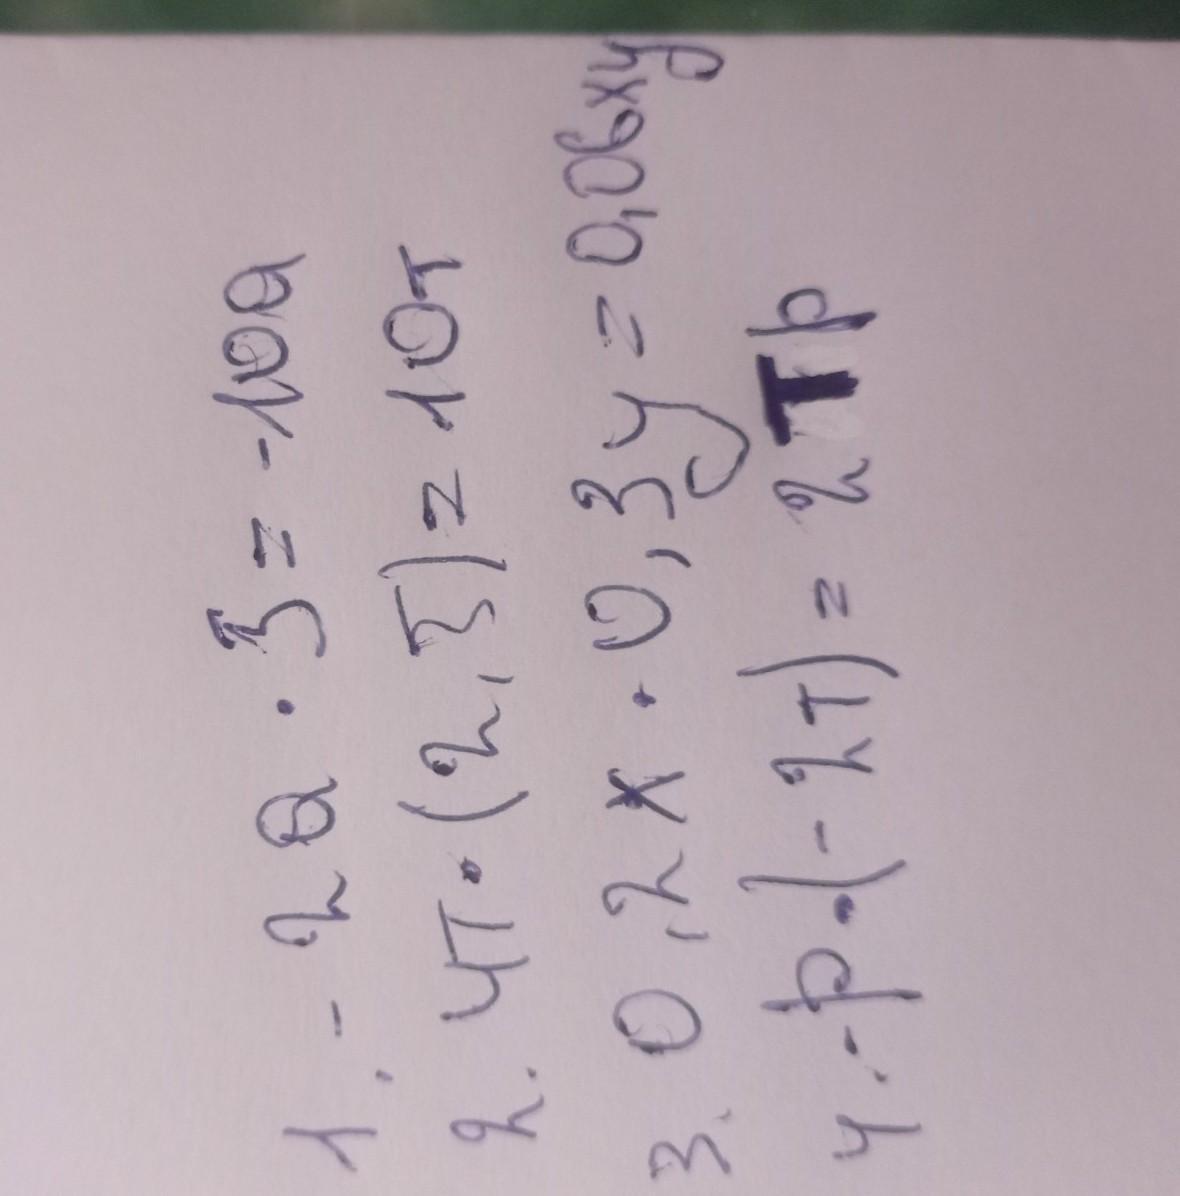 1. - 2a · 5 = -10a
2. 4т · (2,5) = 10т
3. 0,2x · 0,3y = 0,06xy
4. -p · (-2т) = 2тp